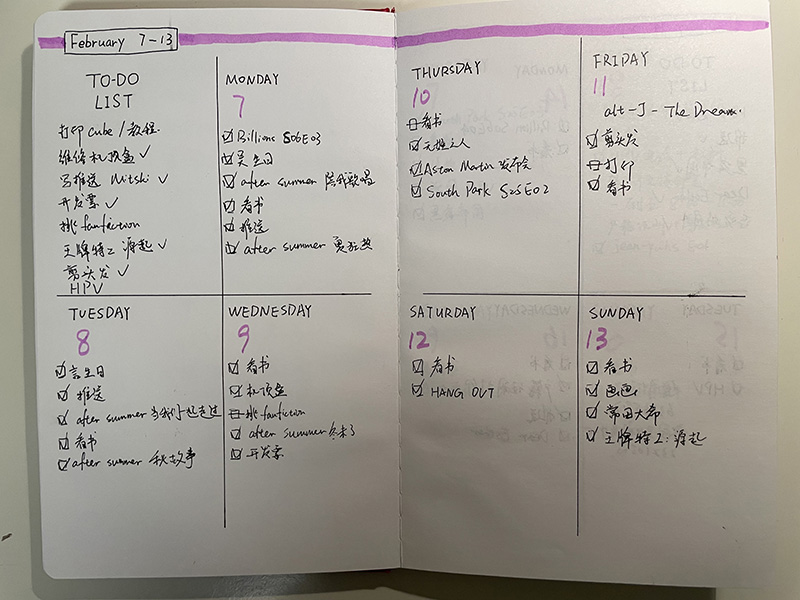 February 7-13
TO-DO
LIST
打印 cube / 教程
维修机顶盒 ✓
写推送 Mitski ✓
开发票 ✓
挑 fanfiction
王牌特工 源起 ✓
剪头发 ✓
HPV
MONDAY
7
☑ Billions S06E03
☑ 生日
☑ after summer 陪我歌唱
☑ 看书
☑ 推送
☑ after summer 夏狂热
TUESDAY
8
☑ 言生日
☑ 推送
☑ after summer 当我们一起走过
☑ 看书
☑ after summer 秋故事
WEDNESDAY
9
☑ 看书
☑ 机顶盒
挑 fanfiction
☑ after summer 冬未了
☑ 开发票
THURSDAY
10
看书
☑ 天主人
☑ Aston Martin 发布会
☑ South Park S25E02
FRIDAY
11
alt-J - The Dream.
☑ 剪头发
打印
☑ 看书
SATURDAY
12
☑ 看书
☑ HANG OUT
SUNDAY
13
☑ 看书
☑ 画画
☑ 常田大希
☑ 王牌特工：源起